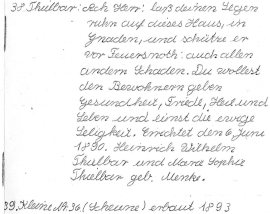 38 Thulbar: Ach Herr: laß deinen Segen
ruhn auf dieses Haus, in
Gnaden, und schütze er
vor Feuersnoth: auch allen
andern Schaden. Du wollest
den Bewohnern geben
Gesundheit, Friede, Heil und
Leben und einst die ewige
Seligkeit. Errichtet den 6 Juni
1890. Heinrich Wilhelm
Thulbar und Marie Sophie
Thulbar geb. Menke.
39. Kleine Nr 36 (Scheune) erbaut 1893